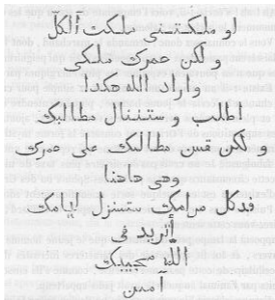 او ملكتسنى ملكت ٱلكلّ
و لكن عمرك ملكى
واراد الله هكدا
اطلب و ستنال مطالبك
و لكن قس مطالبك على عمرك
وهى هاهنا
فدكل مرامك ستنزل ايامك
أتريد فى
ٱللّه مجيبك
آمين